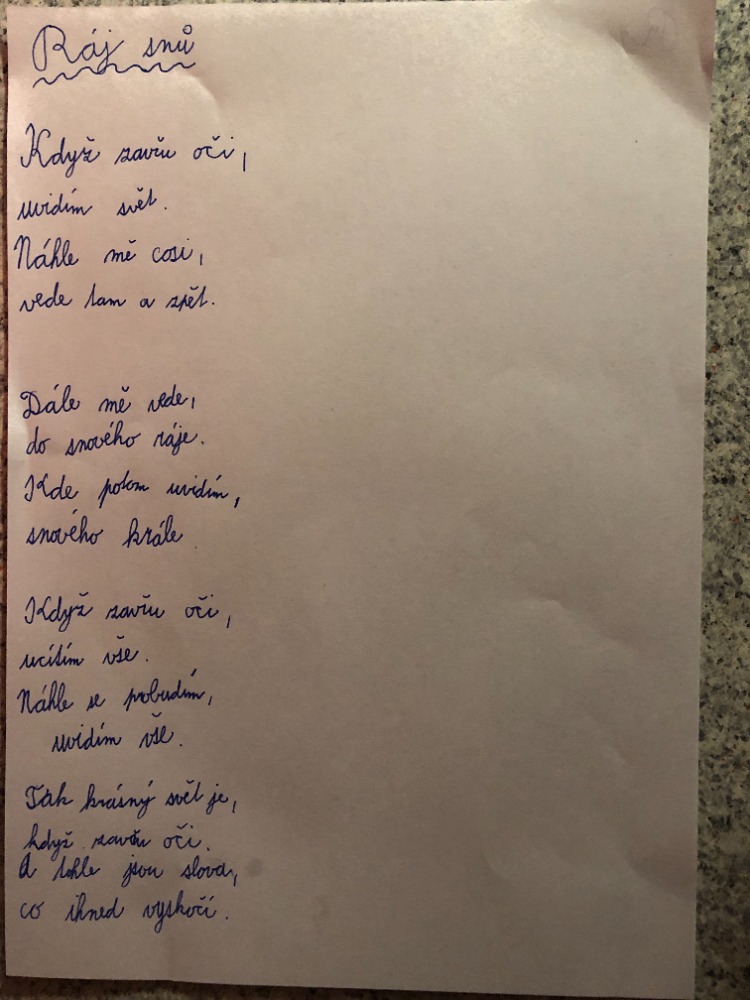 Ráj snů
Když zavřu oči,
uvidím svět.
Náhle mě cosi,
vede tam a zpět.
Dále mě vede,
do snového ráje.
Kde potom uvidím,
snového krále
Když zavřu oči,
ucítím vše.
Náhle se probudím,
uvidím vše.
Ták krásný svět je,
když zavřu oči.
A tohle jsou slova,
co ihned vyskočí.